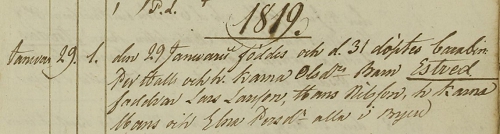 1819.
Januar 29. 1. den 29 Januarii föddes och d. 31 döptes
Per Halls och h. Karna Barn Estred
faddrar Lars Larsson, Måns Nilsson, h. Karna
Måns och Elna Persdr. alla i Bryed